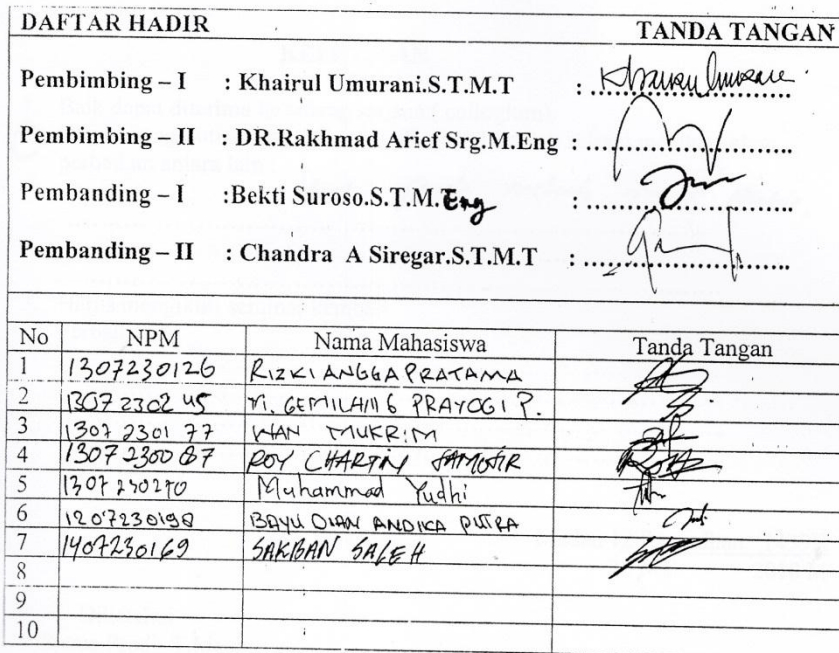 DAFTAR HADIR TANDA TANGAN
Pembimbing – I : Khairul Umurani.S.T.M.T : ....................
Pembimbing – II : DR.Rakhmad Arief Srg.M.Eng : ....................
Pembanding – I :Bekti Suroso.S.T.M.Eng : ....................
Pembanding – II : Chandra A Siregar.S.T.M.T : ....................
No NPM Nama Mahasiswa Tanda Tangan
1 1307230126 RIZKI ANGGA PRATAMA
2 1307230245 M. GEMILANG PRAYOGI P.
3 1307230177 WAN MUKRIM
4 1307230087 ROY CHARTIN SAMOSIR
5 1307230270 Muhammad Yudhi
6 1207230198 BAYU DIAN ANDIKA PUTRA
7 1407230169 SAKBAN SALEH
8
9
10